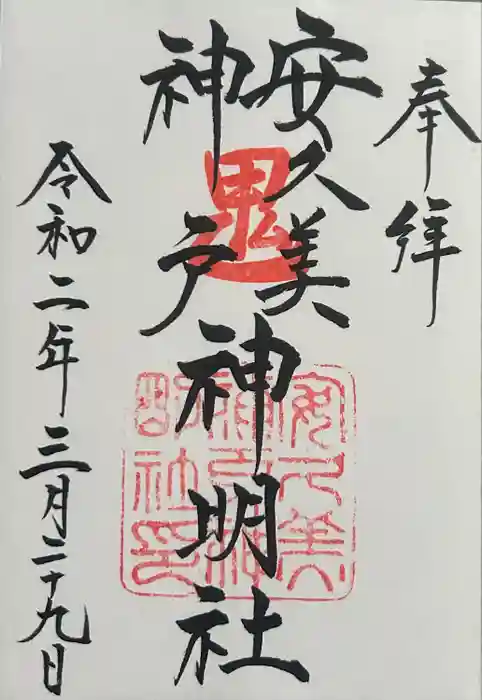 奉拝
安久美
神戸
神明社
鬼
安久美
神戸神
明社印
令和二年三月二十九日